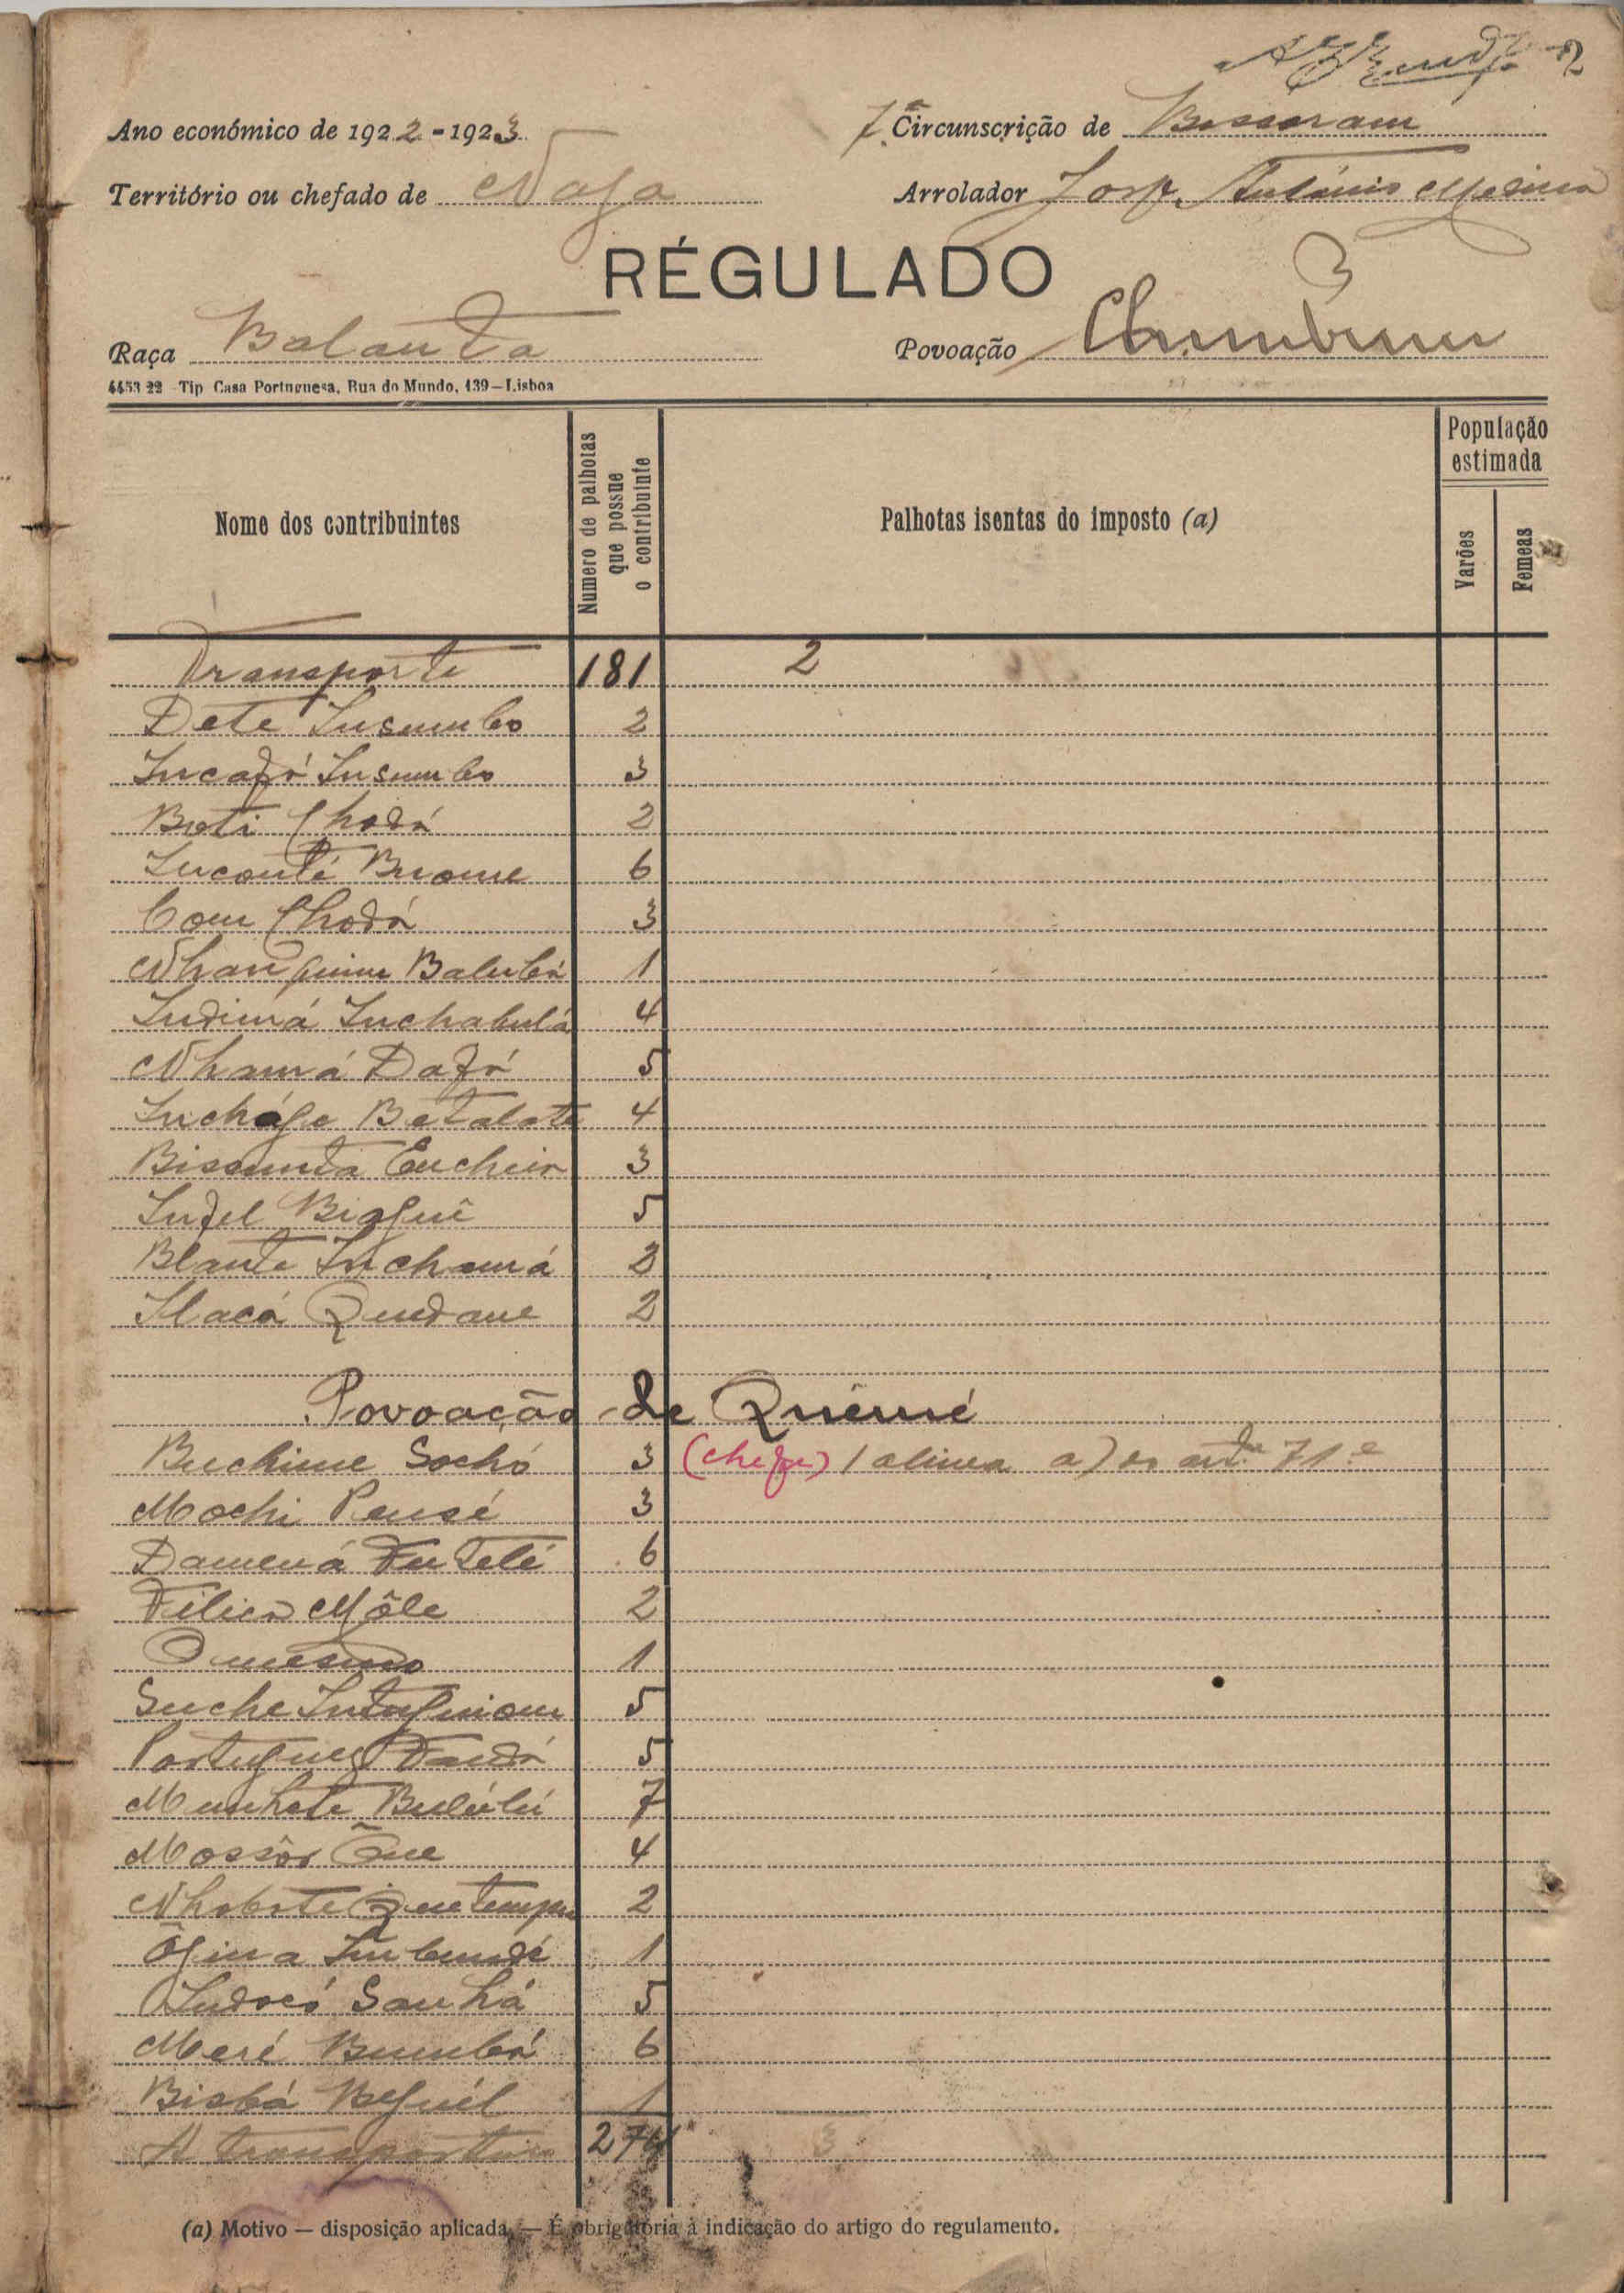 2
Ano económico de 1922-1923
7ª Circunscrição de Bissoram
Território ou chefado de Naga
Arrolador José António
RÉGULADO
3
Raça Balanta
Povoação
4453 22 Tip Casa Portuguesa, Rua do Mundo, 139—Lisboa
Nome dos contribuintes
Numero de palhotas que possue o contribuinte
Palhotas isentas do imposto (a)
População estimada
Varões
Femeas
Transporte 181 2
Dete Insumbo 2
Incafó Insumbo 3
Boti Chodá 2
Inconté Buome 6
Com Chodá 3
Nhan quim Balubá 1
Indimá Inchabulá 4
Nhamá Dafá 5
Inchágo Betalate 4
Bissunta 3
Infel Biaguê 5
Blante Inchamá 2
Ilacá Qundane 2
Povoação de Quéné
Buchime Sochó 3 (chefe) (alinea a) do artº 71.º
Mochi Pensé 3
Damená Fu Telé 6
Filico Môle 2
O mesmo 1
Suche 5
Portugues Fandá 5
Munhete Bulúlú 7
Mossôr Õne 4
Nhobote 2
Ôgina 1
Indocó Sanhá 5
Meré Bumbá 6
Bisbá Beguél 1
A transportar 274 3
(a) Motivo — disposição aplicada. — É obrigatória a indicação do artigo do regulamento.